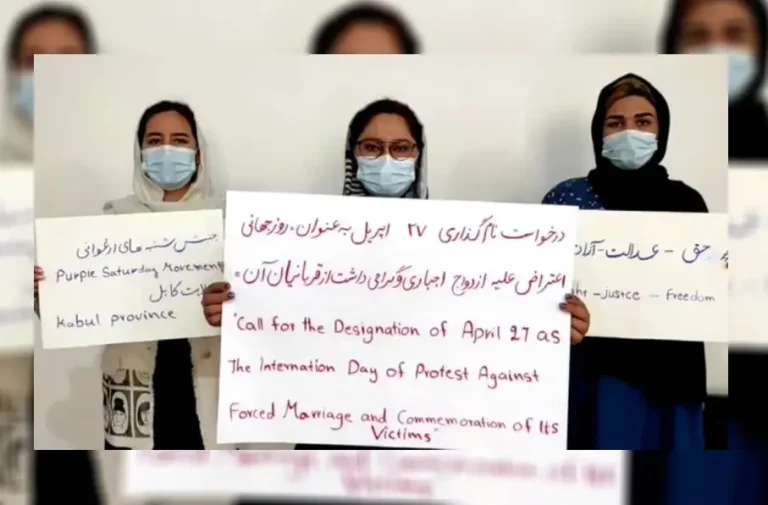 جنبش شنبه های ارغوانی
Purple Saturday Movement
ولایت کابل
Kabul province
درخواست نام گذاری ۲۷ اپریل به عنوان، روز جهانی
اعتراض علیه ازدواج اجباری و گرامی داشت از قربانیان آن"
"Call for the Designation of April 27 as
The Internation Day of Protest Against
Forced Marriage and Commemoration of Its
Victims"
حق - عدالت - آزا
-justice - Freedom